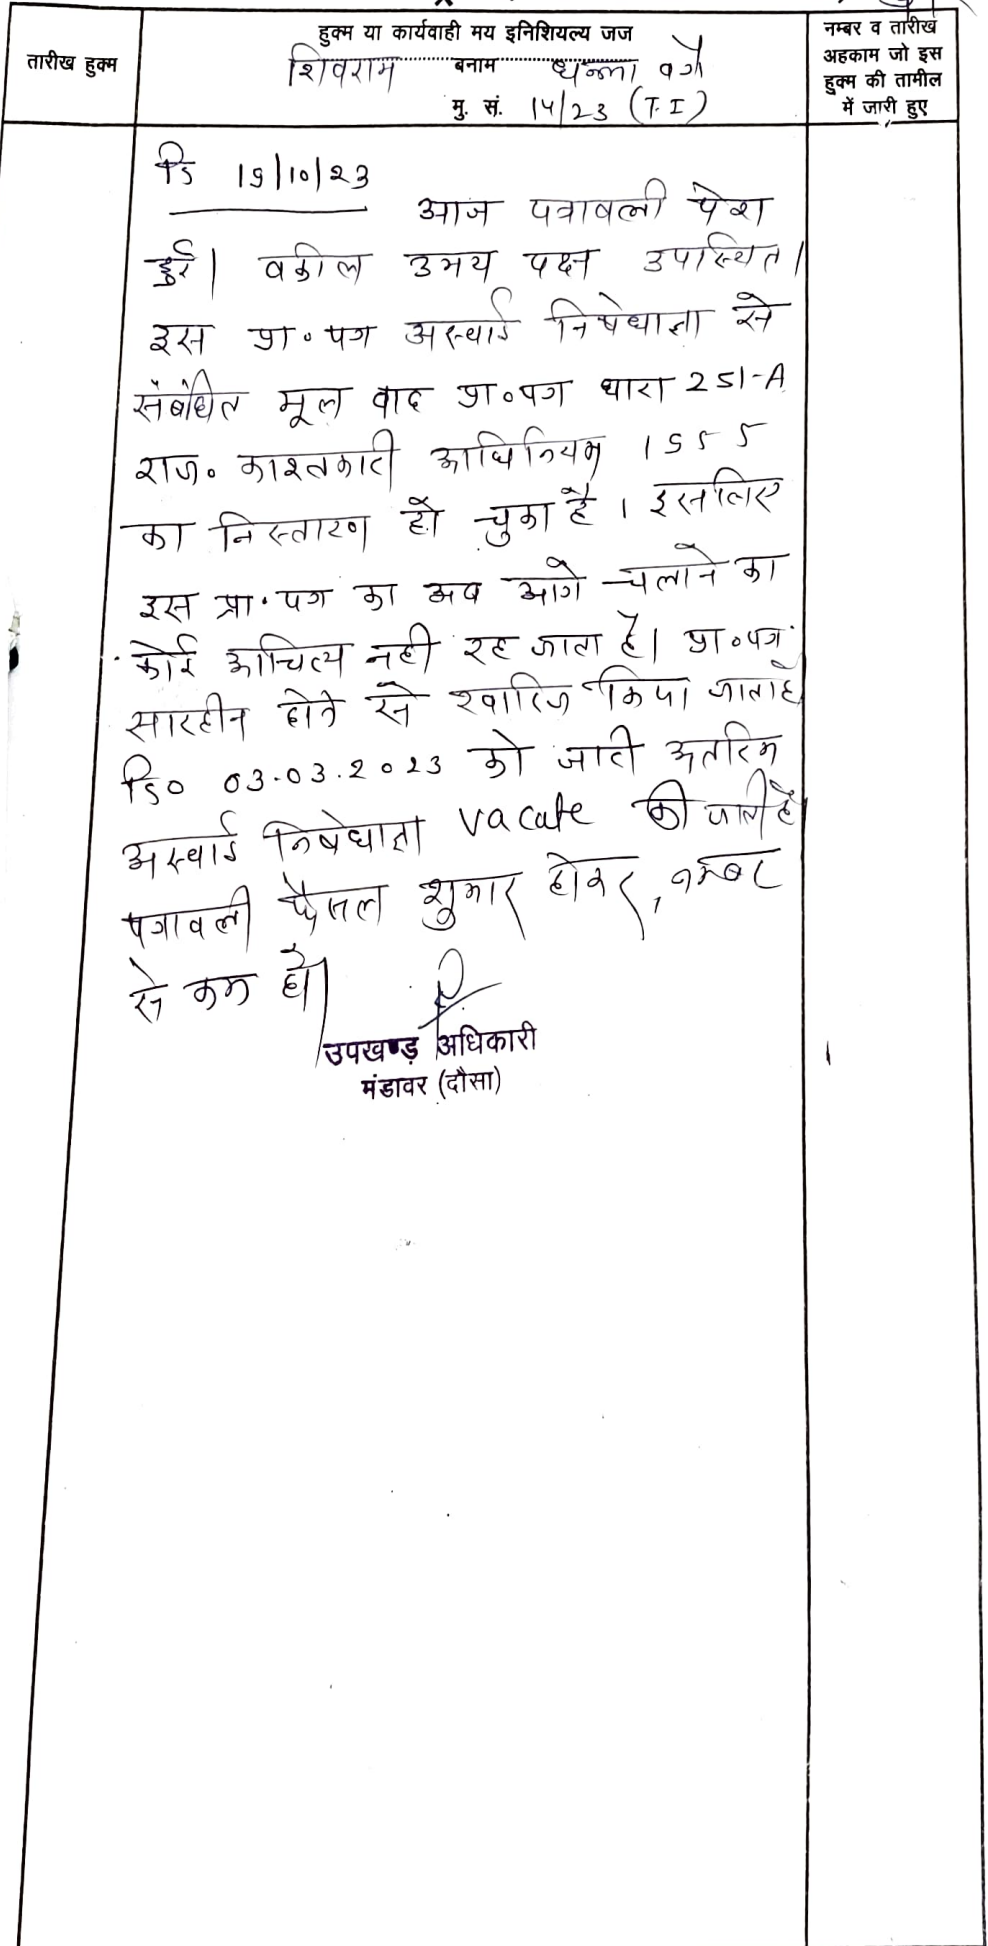 तारीख हुक्म
हुक्म या कार्यवाही मय इनिशियल्य जज
शिवराम बनाम धन्ना वगै
मु. सं. 14/23 (T.I)
नम्बर व तारीख
अहकाम जो इस
हुक्म की तामील
में जारी हुए
दि 19/10/23
आज पत्रावली पेश
हुई। वकील उभय पक्ष उपस्थित।
इस प्रा०पत्र अस्थाई निषेधाज्ञा से
संबंधित मूल वाद प्रा०पत्र धारा 251-A
राज० काश्तकारी अधिनियम 1955
का निस्तारण हो चुका है। इसलिए
इस प्रा.पत्र का अब आगे चलाने का
कोई औचित्य नही रह जाता है। प्रा०पत्र
सारहीन होने से खारिज किया जाता है
दि० 03.03.2023 को जारी अंतरिम
अस्थाई निषेधाज्ञा vacate की जाती है
पत्रावली फैसल शुमार होकर, नम्बर
से कम हो।
उपखण्ड़ अधिकारी
मंडावर (दौसा)